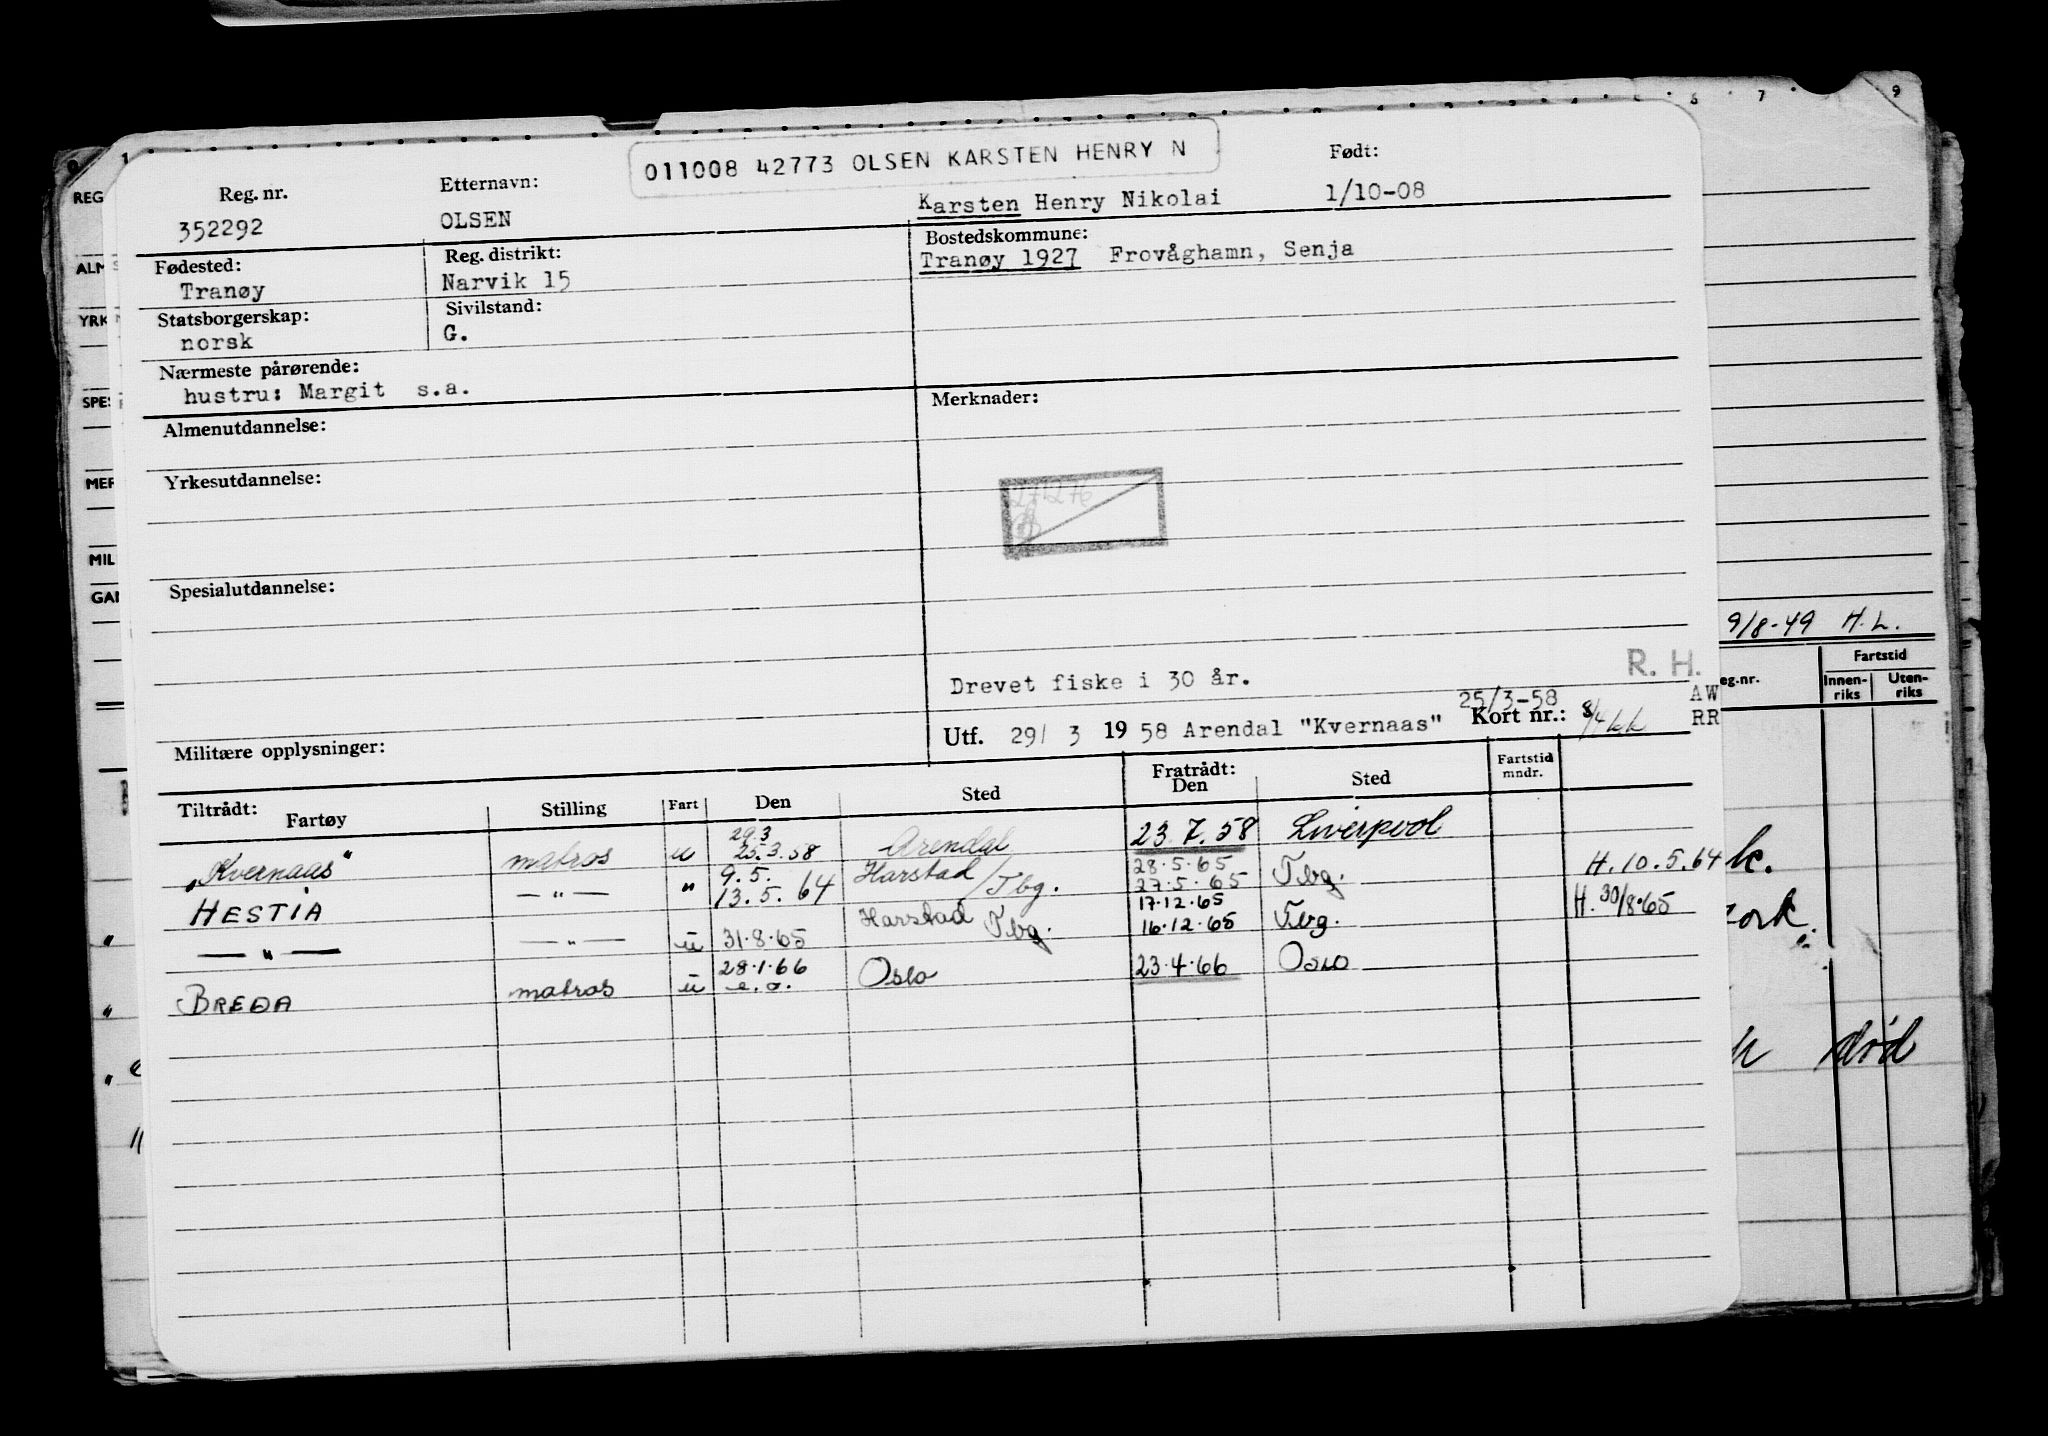 011008 42773 OLSEN KARSTEN HENRY N
Reg. nr. Etternavn: Født:
352292 OLSEN Karsten Henry Nikolai 1/10-08
Fødested: Reg. distrikt: Bostedskommune:
Tranøy Narvik 15 Tranøy 1927 Frovåghamn, Senja
Statsborgerskap: Sivilstand:
norsk G.
Nærmeste pårørende:
hustru: Margit s.a.
Almenutdannelse: Merknader:
Yrkesutdannelse:
Spesialutdannelse:
Drevet fiske i 30 år. R. H.
25/3-58 AW
Militære opplysninger: Utf. 29/ 3 1958 Arendal "Kvernaas" Kort nr.: 8/4 kk RR
Tiltrådt: Fartøy Stilling Fart Den Sted Fratrådt: Den Sted Fartstid mndr.
29.3
"Kvernaas" matros u 25.3.58 Arendal 23.7.58 Liverpool
9.5. 28.5.65
HESTIA — " — " 13.5.64 Harstad/Tbg. 27.5.65 Tbg. H.10.5.64
17.12.65
— " — — " — u 31.8.65 Harstad Tbg. 16.12.65 Tbg. H. 30/8.65
28.1.66
BREDA matros u e.o. Oslo 23.4.66 Oslo
REG
ALM
YRK
SPES
MER
MIL
GAN
6 7 9
9/8-49 H.L.
eg.nr. Fartstid
Innen-riks Uten-riks
k.
ork.
død